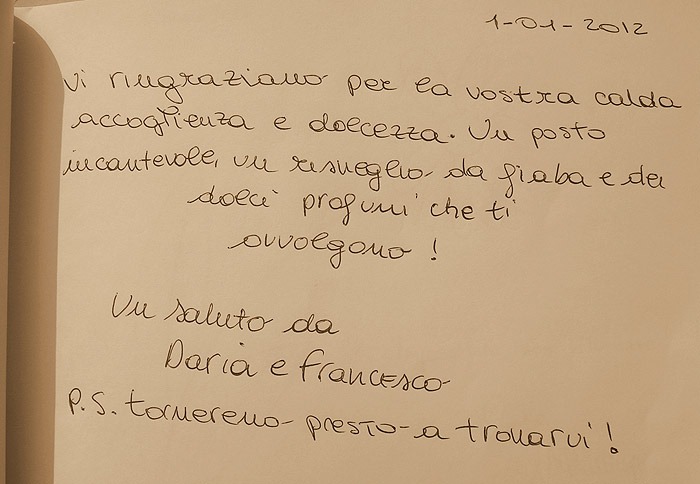 1-01-2012
Vi ringraziamo per la vostra calda
accoglienza e dolcezza. Un posto
incantevole, un risveglio da fiaba e dei
dolci profumi che ti
avvolgono!
Un saluto da
Daria e Francesco
P.S. torneremo presto a trovarvi!